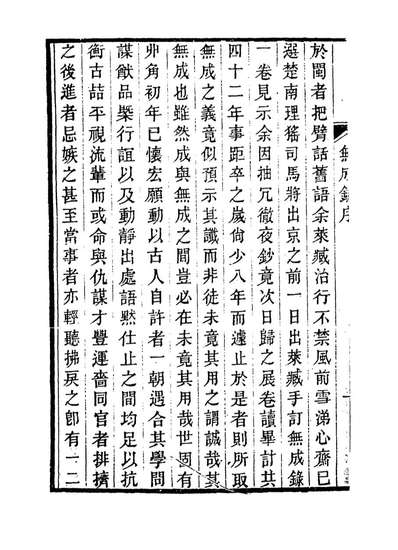 無成錄序
於閩者把臂話舊語余萊臧治行不禁風前雪涕心齋巳
選楚南理猺司馬將出京之前一日出萊臧手訂無成錄
一卷見示余因抽冗徹夜鈔竟次日歸之展卷讀畢計共
四十二年事距卒之歲尙少八年而遽止於是者則所取
無成之義竟似預示其讖而非徒未竟其用之謂誠哉其
無成也雖然成與無成之間豈必在未竟其用哉世固有
丱角初年已懷宏願動以古人自許者一朝遇合其學問
謀猷品槩行誼以及動靜出處語黙仕止之間均足以抗
衡古喆平視流輩而或命與仇謀才豐運嗇同官者排擠
之後進者忌嫉之甚至當事者亦輕聽拂戾之卽有一二